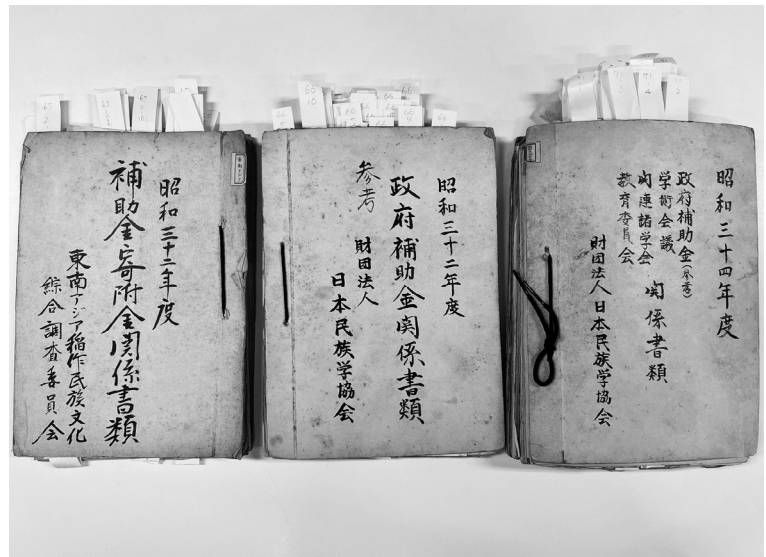 昭和三十二年度
補助金寄附金関係書類
東南アジア稲作民族文化
綜合調査委員会
昭和三十二年度
政府補助金関係書類
参考
財団法人
日本民族学協会
昭和三十四年度
政府補助金(参考)
学術会議
関連諸学会
教育委員会
関係書類
財団法人日本民族学協会